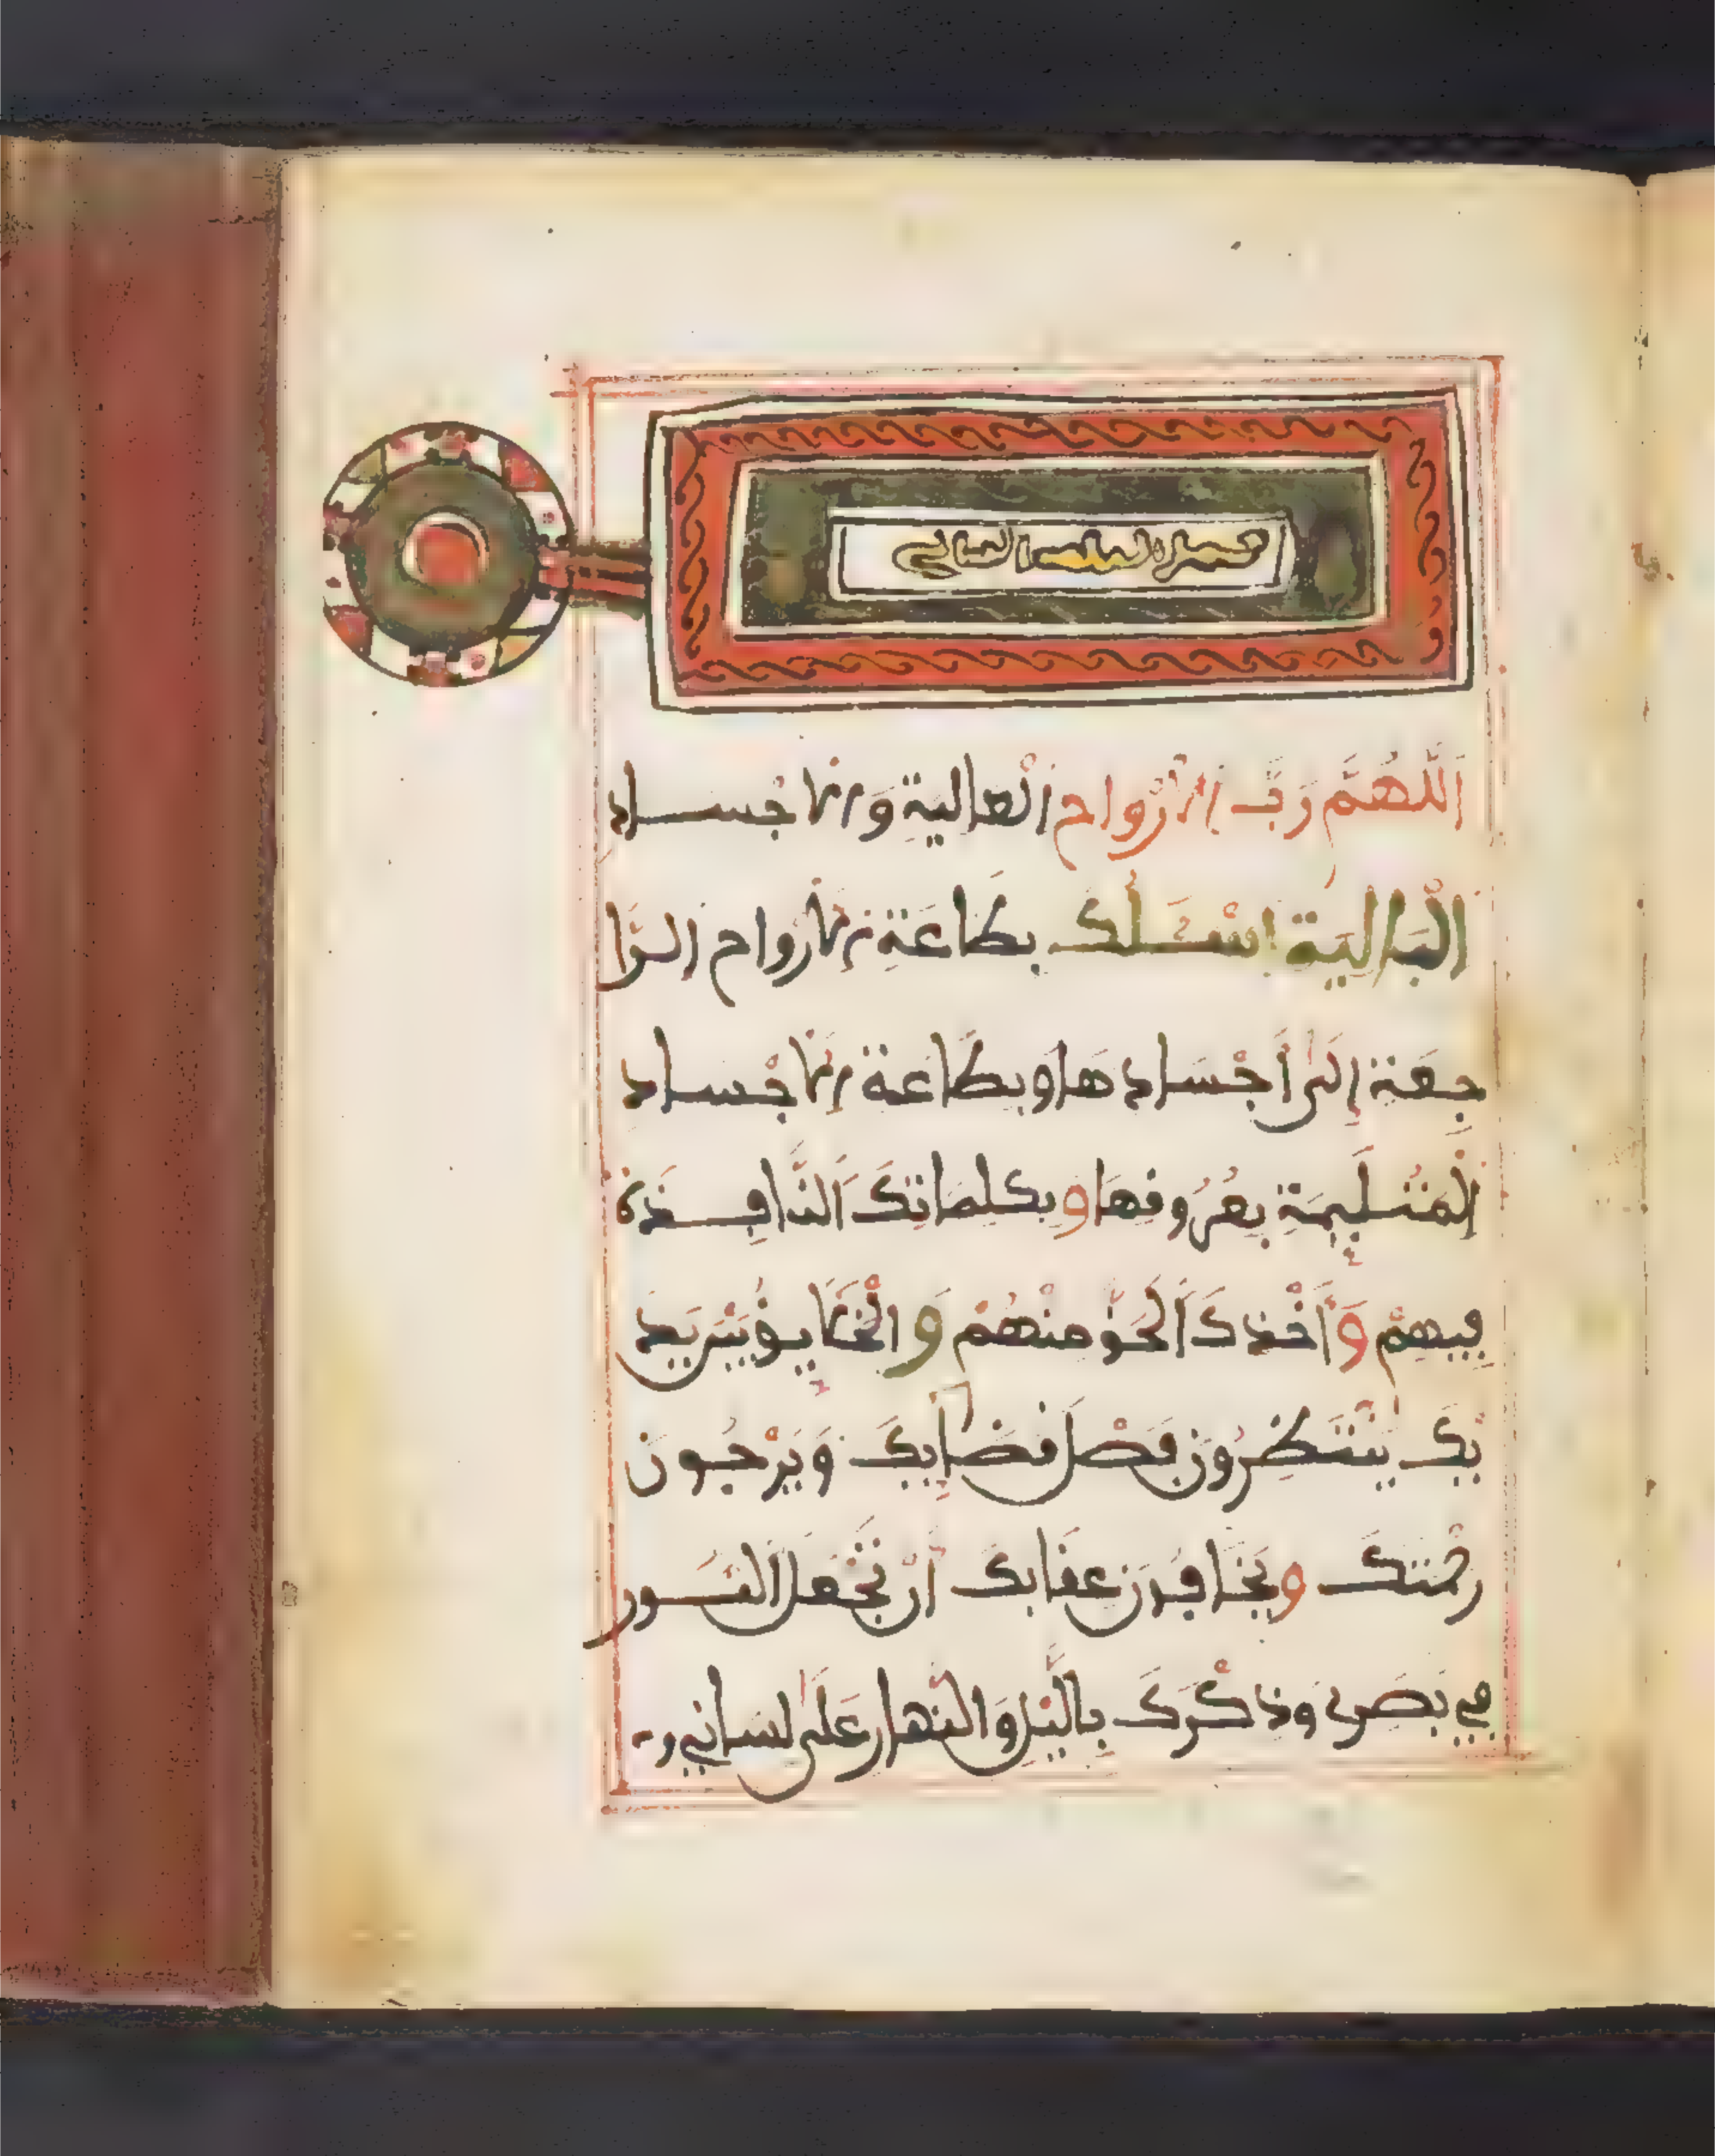 الثلث الثاني
اَللَّهُمَّ رَبَّ الْأَرْوَاحِ الْعالية وَالْأجْساد
الْبَالِيَة اسْئَلُكَ بِطَاعَةِ الْأرواح الرَّا
جِعَة إِلَى أَجْسَادِهَا وبطَاعة الأجْساد
الْمُلْتَيِمَةِ بعُرُوقهَا وبكلماتكَ النَّافِذة
فِيهِمْ وَأَخْذكَ الحَقَّ منْهُمْ وَالْخَلَايِقُ بَيْنَ يَدَ
يْكَ يَنْتَظِرُونَ فَصْلَ قَضَايِكَ وَيَرْجُونَ
رحْمَتكَ ويَخَافُونَ عقَابكَ أَنْ تَجْعَلَ النُّورَ
فِي بَصَرِي وَذِكْرَكَ بِالَّيْلِ وَالنَّهارِ عَلَى لسَانِي و